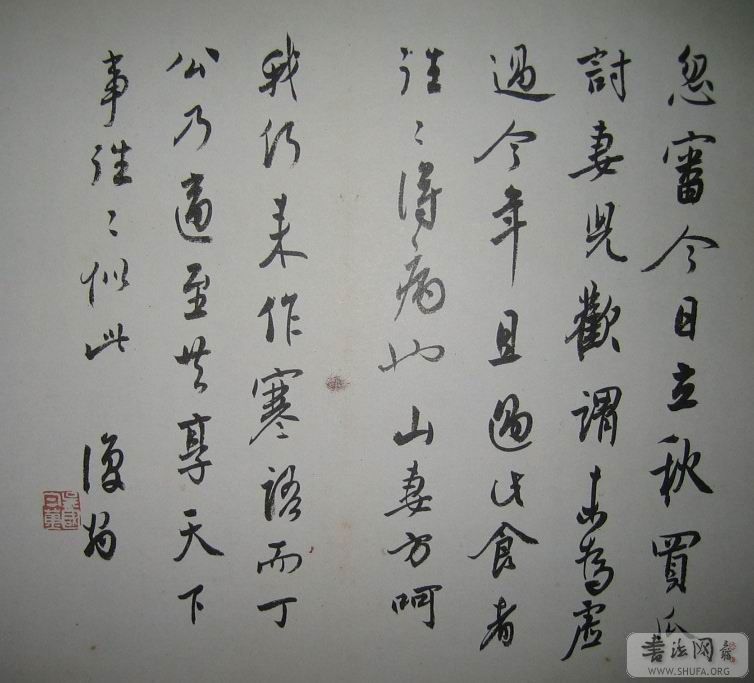 忽審今日立秋買瓜
討妻兒歡謂未為虛
過今年且過此食者
往〻得病也山妻方呵
我仍来作寒語而丁
公乃適至共享天下
事往〻似此
書法网
WWW.SHUFA.ORG